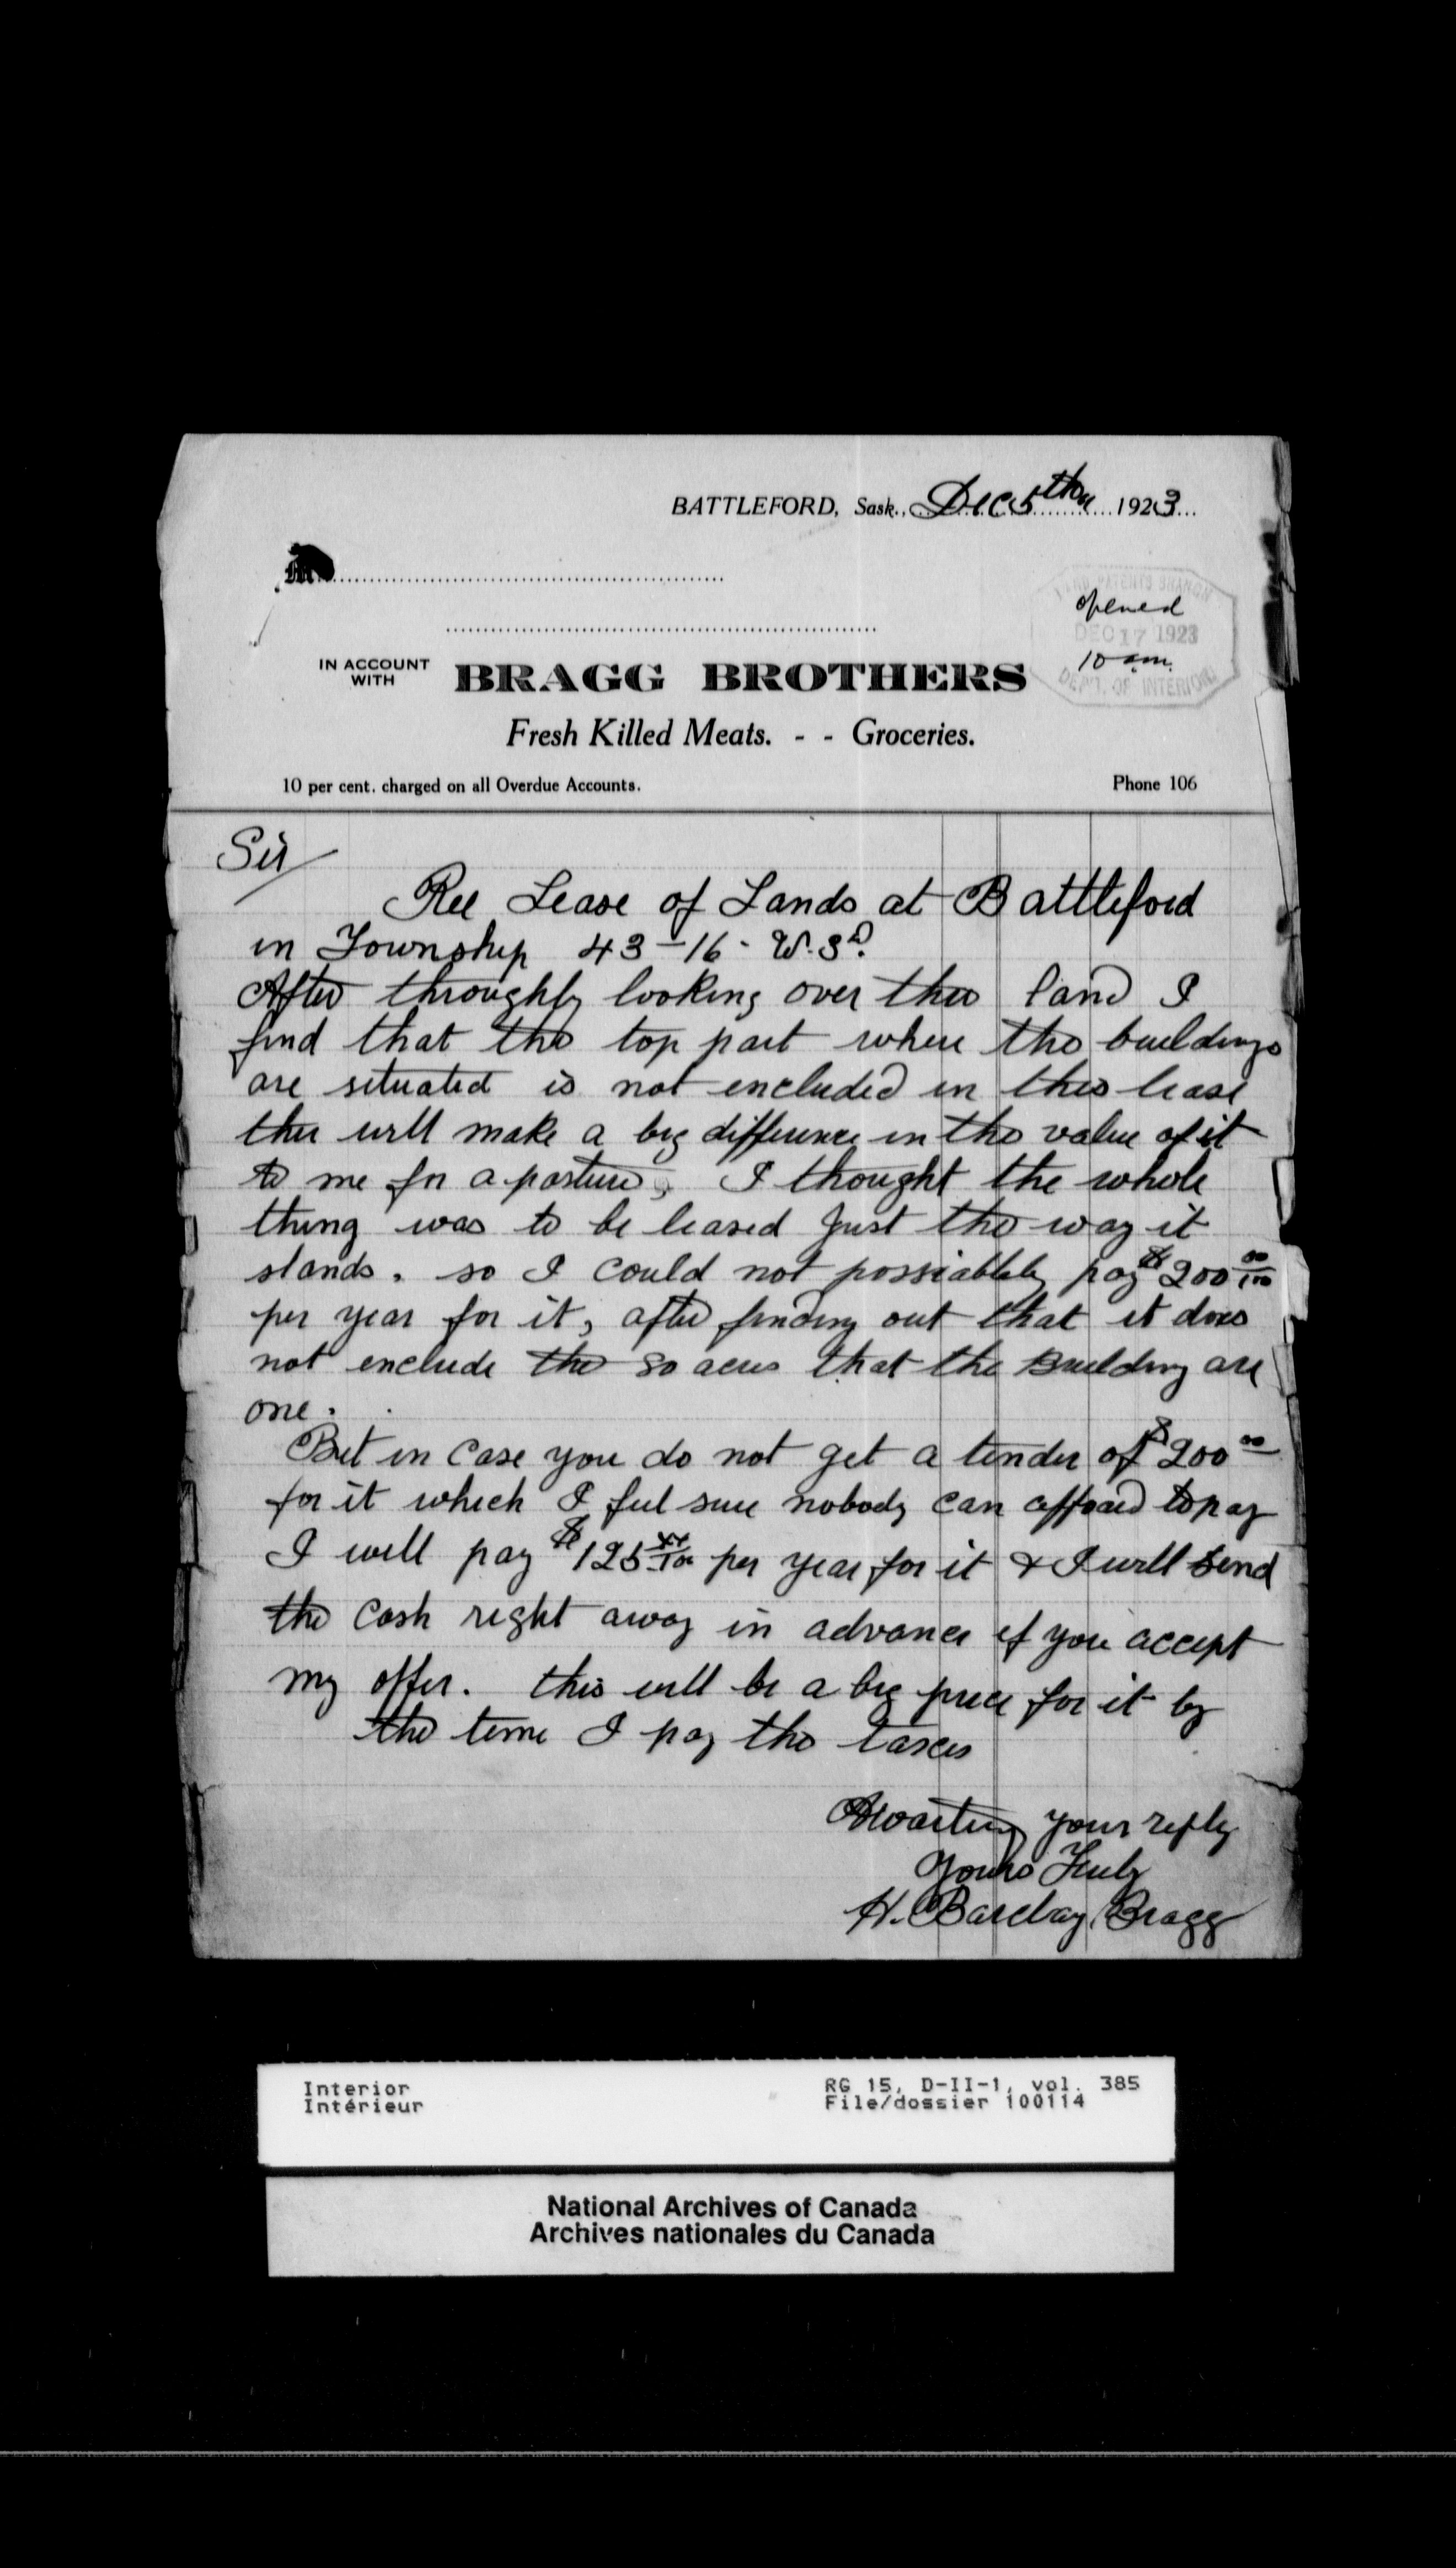 BATTLEFORD, Sask., Dec 5th 1923
M
LAND PATENTS BRANCH
opened
DEC 17 1923
10 am.
DEP'T. OF INTERIOR
IN ACCOUNT
WITH
BRAGG BROTHERS
Fresh Killed Meats. - - Groceries.
10 per cent. charged on all Overdue Accounts. Phone 106
Sir
Ree Lease of Lands at Battleford
in Township 43-16-W.3D.
After throughly looking over this land I
find that the top part where the buildings
are situated is not encluded in this lease
this will make a big difference in the value of it
to me for a pasture, I thought the whole
thing was to be leased Just the way it
stands. so I could not possiablely pay $200 00/100
per year for it, after finding out that it does
not enclude the 80 acres that the Building are
one.
But in Case you do not get a tender of $200 00
for it which I feel sure nobody can afford to pay
I will pay $125 xx/100 per year for it & I will send
the Cash right away in advance if you accept
my offer. this will be a big price for it by
the time I pay the taxes
Awaiting your reply
Yours Truly
H. Barclay Bragg
Interior
Intérieur
RG 15, D-II-1, vol. 385
File/dossier 100114
National Archives of Canada
Archives nationales du Canada